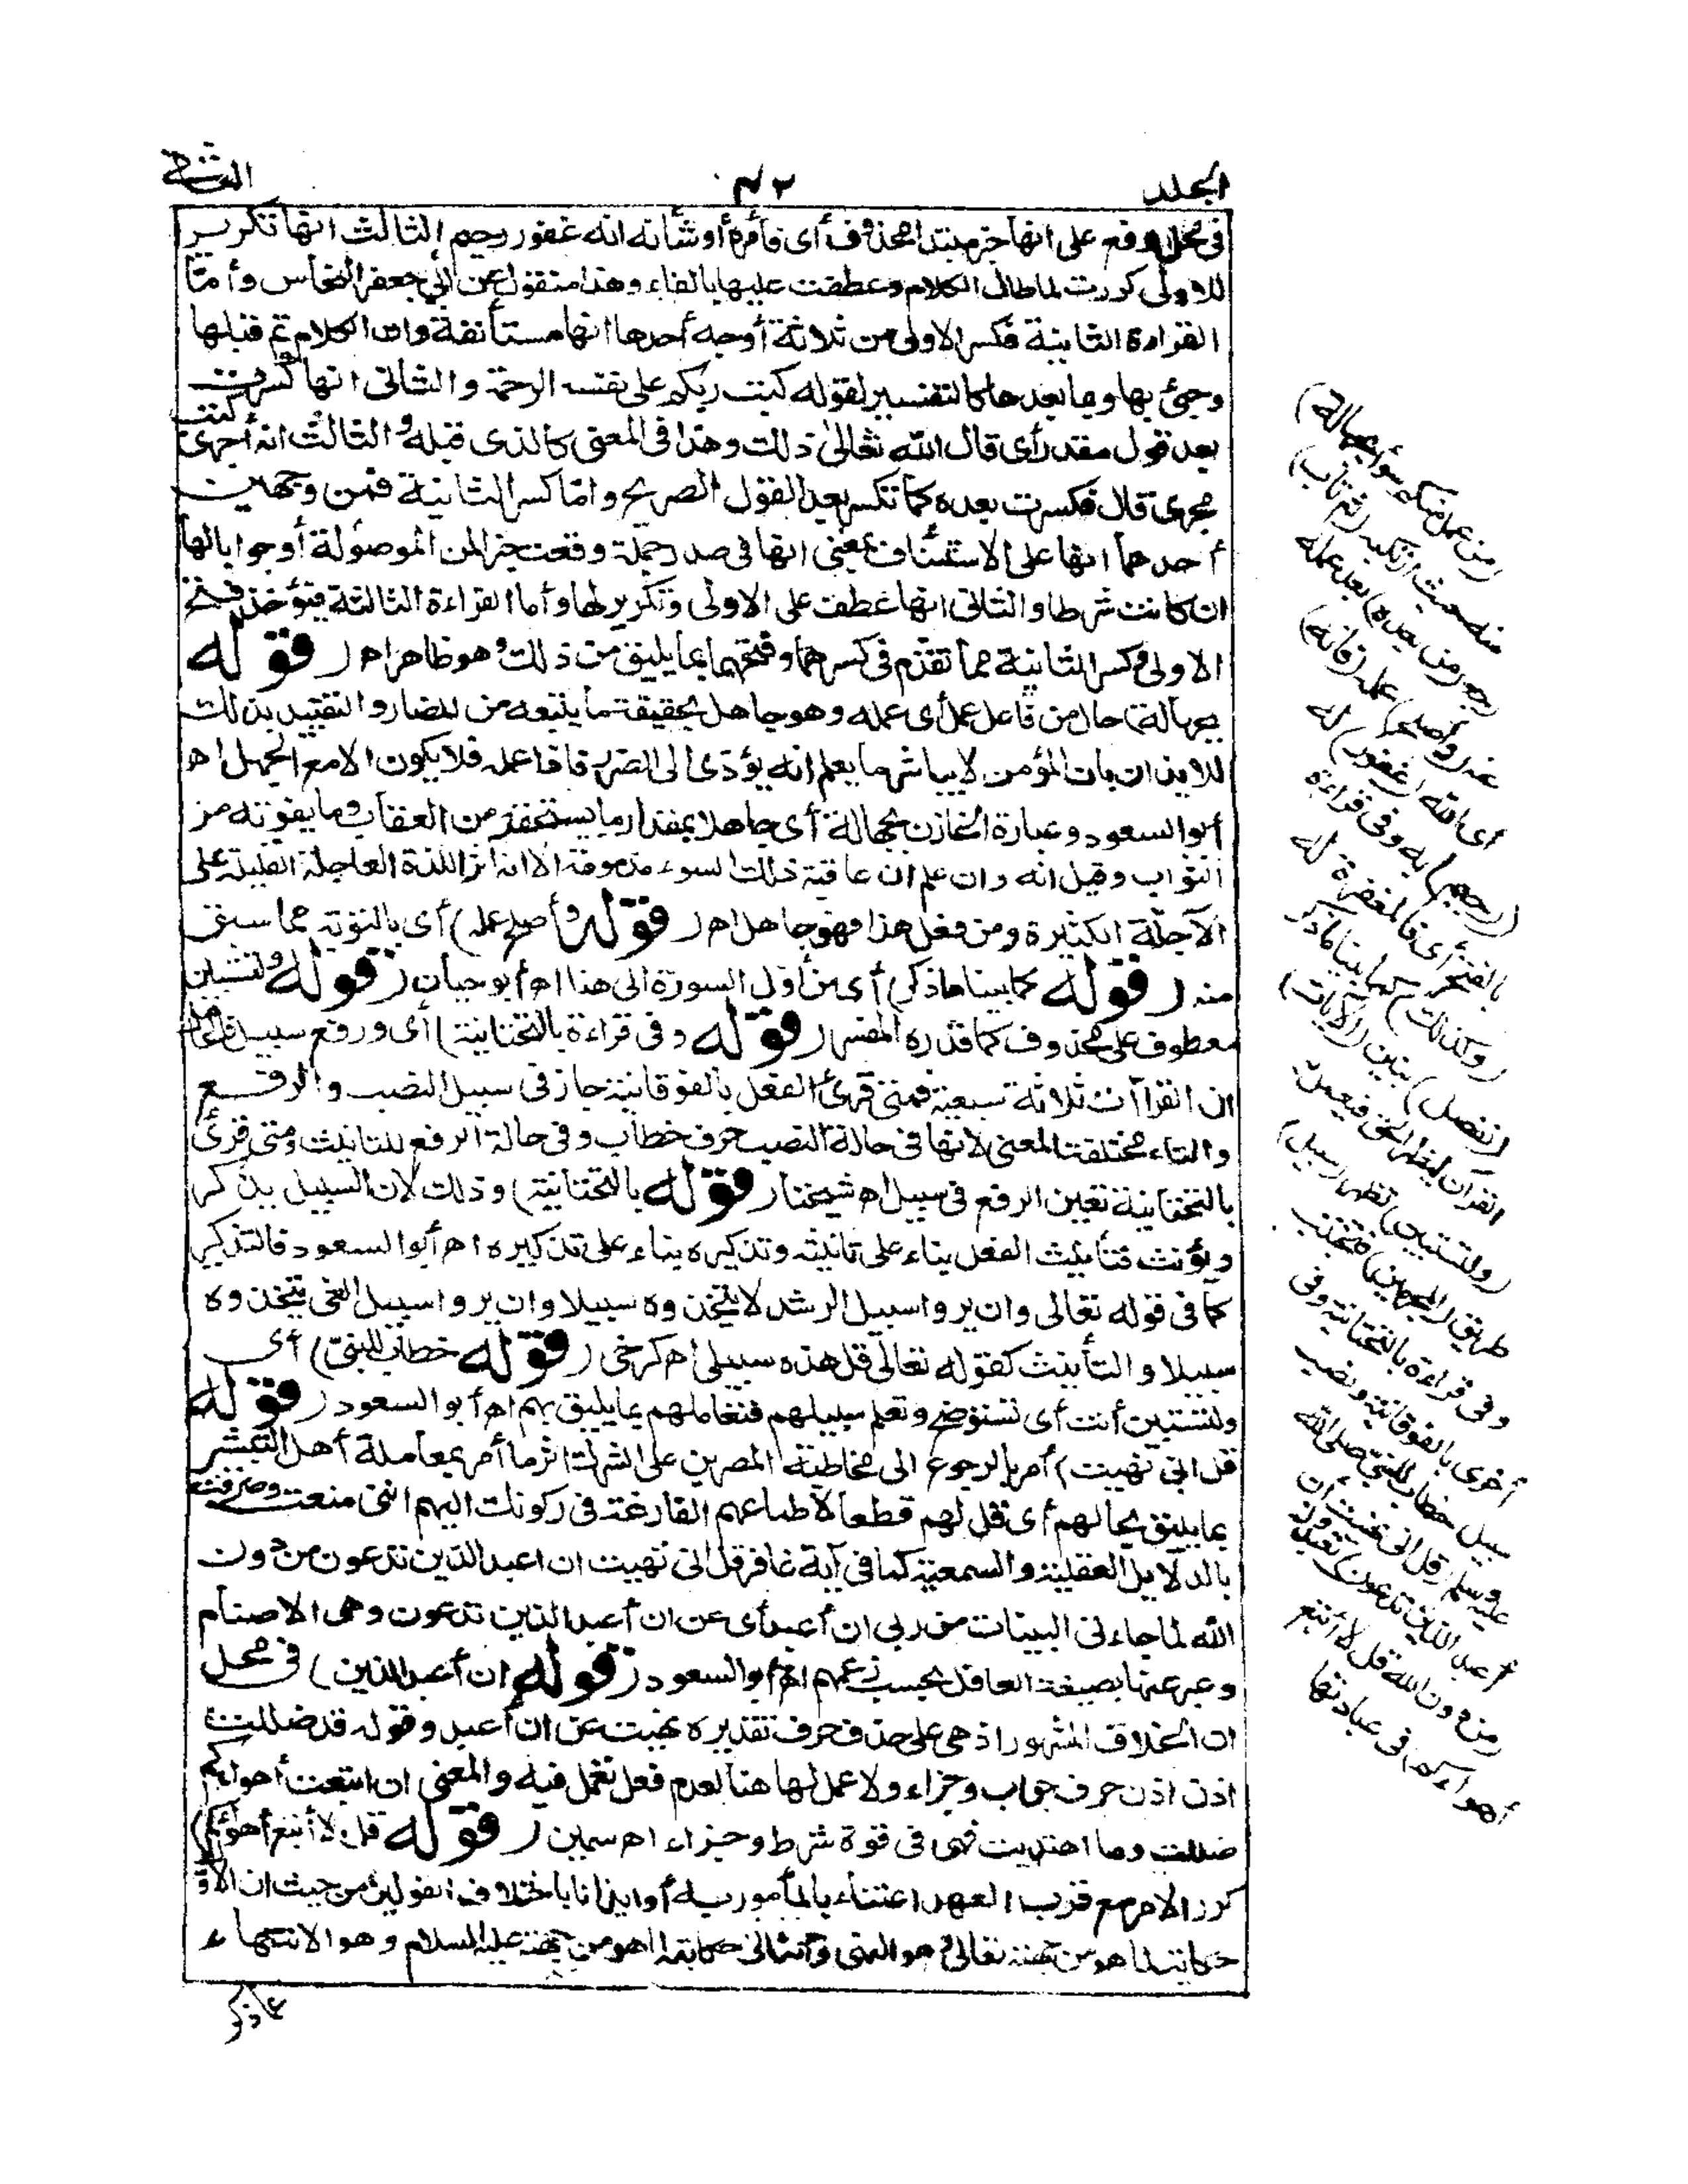 الجلد
٤٢
الثانى
فى محل رفع على انها خبر مبتدا محذوف أى فأمره أو شأنه انه غفور رحيم الثالث انها تكرير
للاولى كررت لما طال الكلام وعطفت عليها بالفاء وهذا منقول عن أبى جعفر النحاس وأمّا
القراءة الثانية فكسر الاولى من ثلاثة أوجه أحدها انها مستأنفة وان الكلام تم قبلها
وجئ بها وبما بعدها كالتفسير لقوله كتب ربكم على نفسه الرحمة والثانى انها كسرت
بعد قول مقدر أى قال الله تعالى ذلك وهذا فى المعنى كالذى قبله والثالث انه أجرى كتب
مجرى قال فكسرت بعده كما تكسر بعد القول الصريح وامّا كسر الثانية فمن وجهين
أحدهما انها على الاستئناف بمعنى انها فى صدر جملة وقعت خبرا لمن الموصولة أو جوابا لها
ان كانت شرطا والثانى انها عطفت على الاولى وتكرير لها وأما القراءة الثالثة فيؤخذ فتح
الاولى وكسر الثانية مما تقدّم فى كسرهما وفتحهما بما يليق من ذلك وهو ظاهر اه (قوله
بجهالة) حال من فاعل عمل أى عمله وهو جاهل بحقيقة ما يتبعه من المضار والتقييد بذلك
للايذان بان المؤمن لا يباشر ما يعلم انه يؤدّى الى الضرر فاذا عمله فلا يكون الا مع الجهل اه
أبو السعود وعبارة الخازن بجهالة أى جاهلا بمقدار ما يستحقه من العقاب وما يفوته من
الثواب وقيل انه وان علم ان عاقبة ذلك السوء مذمومة الا انه اثر اللذة العاجلة القليلة على
الآجلة الكثيرة ومن فعل هذا فهو جاهل اه (قوله وأصلح عمله) أى بالتوبة مما سبق
منه (قوله كما بينا ما ذكر) أى من أول السورة الى هنا اه أبو حيان (قوله ولتستبين
معطوف على محذوف كما قدّره المفسر (قوله وفى قراءة بالتحتانية) أى ورفع سبيل فالحاصل
ان القراآت ثلاثة سبعية فمتى قرئ الفعل بالفوقانية جاز فى سبيل النصب والرفع
والتاء مختلفة المعنى لانها فى حالة النصب حرف خطاب وفى حالة الرفع للتانيث ومتى قرئ
بالتحتانية تعين الرفع فى سبيل اه شيخنا (قوله بالتحتانية) وذلك لان السبيل يذكر
ويؤنث فتأنيث الفعل بناء على تانيثه وتذكيره بناء على تذكيره اه أبو السعود فالتذكير
كما فى قوله تعالى وان يروا سبيل الرشد لا يتخذوه سبيلا وان يروا سبيل الغى يتخذوه
سبيلا والتأنيث كقوله تعالى قل هذه سبيلى اه كرخى (قوله خطاب للنبىّ) أى
ولتستبين أنت أى تستوضح وتعلم سبيلهم فتعاملهم بما يليق بهم اه أبو السعود (قوله
قل انى نهيت) أمر بالرجوع الى مخاطبة المصرين على الشرك اثر ما أمر بمعاملة أهل التبشير
بما يليق بحالهم أى قل لهم قطعا لأطماعهم الفارغة فى ركونك اليهم انى منعت وصرفت
بالدلايل العقلية والسمعية كما فى آية غافر قل انى نهيت ان اعبد الذين تدعون من دون
الله لما جاءنى البينات من ربى ان أعبد أى عن ان أعبد الذين تدعون وهى الاصنام
وعبر عنها بصيغة العاقل بحسب زعمهم اه أبو السعود (قوله ان أعبد الذين) فى محل
ان الخلاف المشهور اذ هى على حذف حرف تقديره نهيت عن ان أعبد وقوله قد ضللت
اذن اذن حرف جواب وجزاء ولا عمل لها هنا لعدم فعل تعمل فيه والمعنى ان اتبعت أهواءكم
ضللت وما اهتديت فهى فى قوة شرط وجزاء اه سمين (قوله قل لا أتبع أهواءكم)
كرر الامر مع قرب العهد اعتناء بالمأمور به أو ايذانا باختلاف القولين من حيث ان الاوّل
حكاية لما هو من جهته تعالى وهو النهى والثانى حكاية لما هو من جهته عليه السلام وهو الانتهاء
عما ذكر
(من عمل منكم سوأ بجهالة)
منه حيث ارتكبه (ثم تاب)
رجع (من بعده) بعد عمله
عنه (وأصلح) عمله (فانه)
أى الله (غفور) له
(رحيم) به وفى قراءة
بالفتح أى فالمغفرة له
(وكذلك) كما بينا ما ذكر
(نفصل) نبين (الآيات)
القرآن ليظهر الحق فيعمل به
(ولتستبين) تظهر (سبيل)
طريق (المجرمين) فتجتنب
وفى قراءة بالتحتانية وفى
أخرى بالفوقانية ونصب
سبيل خطاب للنبىّ صلى الله
عليه وسلم (قل انى نهيت أن
أعبد الذين تدعون) تعبدون
(من دون الله قل لا أتبع
أهواءكم) فى عبادتها